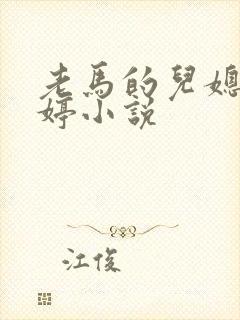 老馬的兒媳
婷小説
江俊